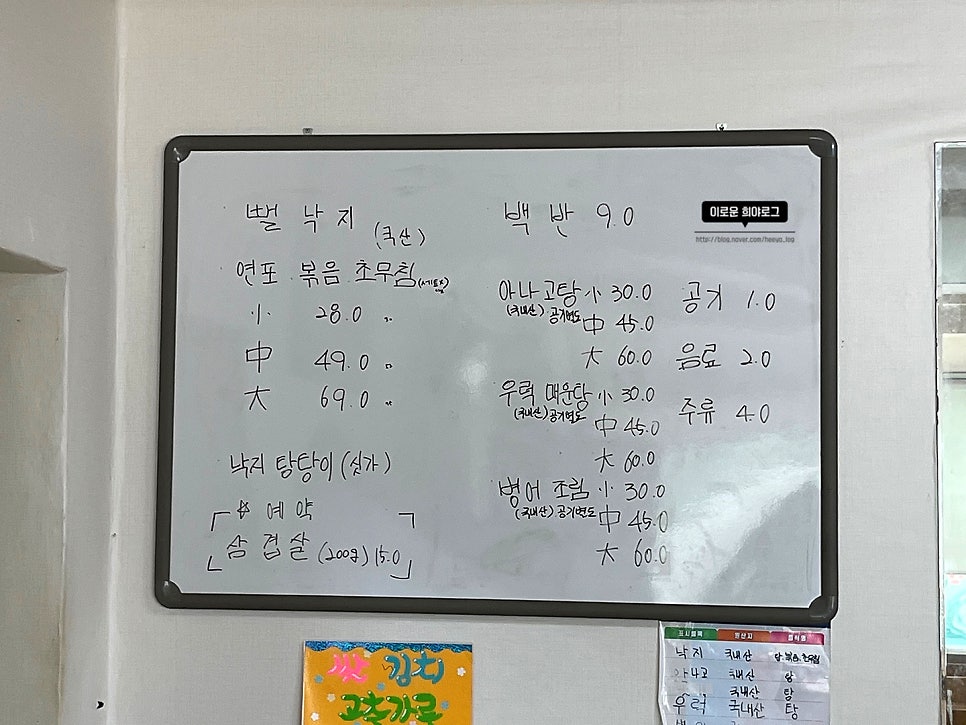 뻘 낙지 (국산)
연포 볶음 초무침
小 28.0
中 49.0
大 69.0
낙지 탕탕이 (싯가)
☆ 예약
삼겹살 (200g) 15.0
백반 9.0
아나고탕 小 30.0
(국내산) 공기별도 中 45.0
大 60.0
우럭 매운탕 小 30.0
(국내산) 공기별도 中 45.0
大 60.0
병어 조림 小 30.0
(국내산) 공기별도 中 45.0
大 60.0
공기 1.0
음료 2.0
주류 4.0
이로운 희야로그
http://blog.naver.com/heeya_log
쌀 김치
고춧가루
표시품목 원산지 음식명
낙지 국내산
아나고 국내산 탕
우럭 국내산 탕